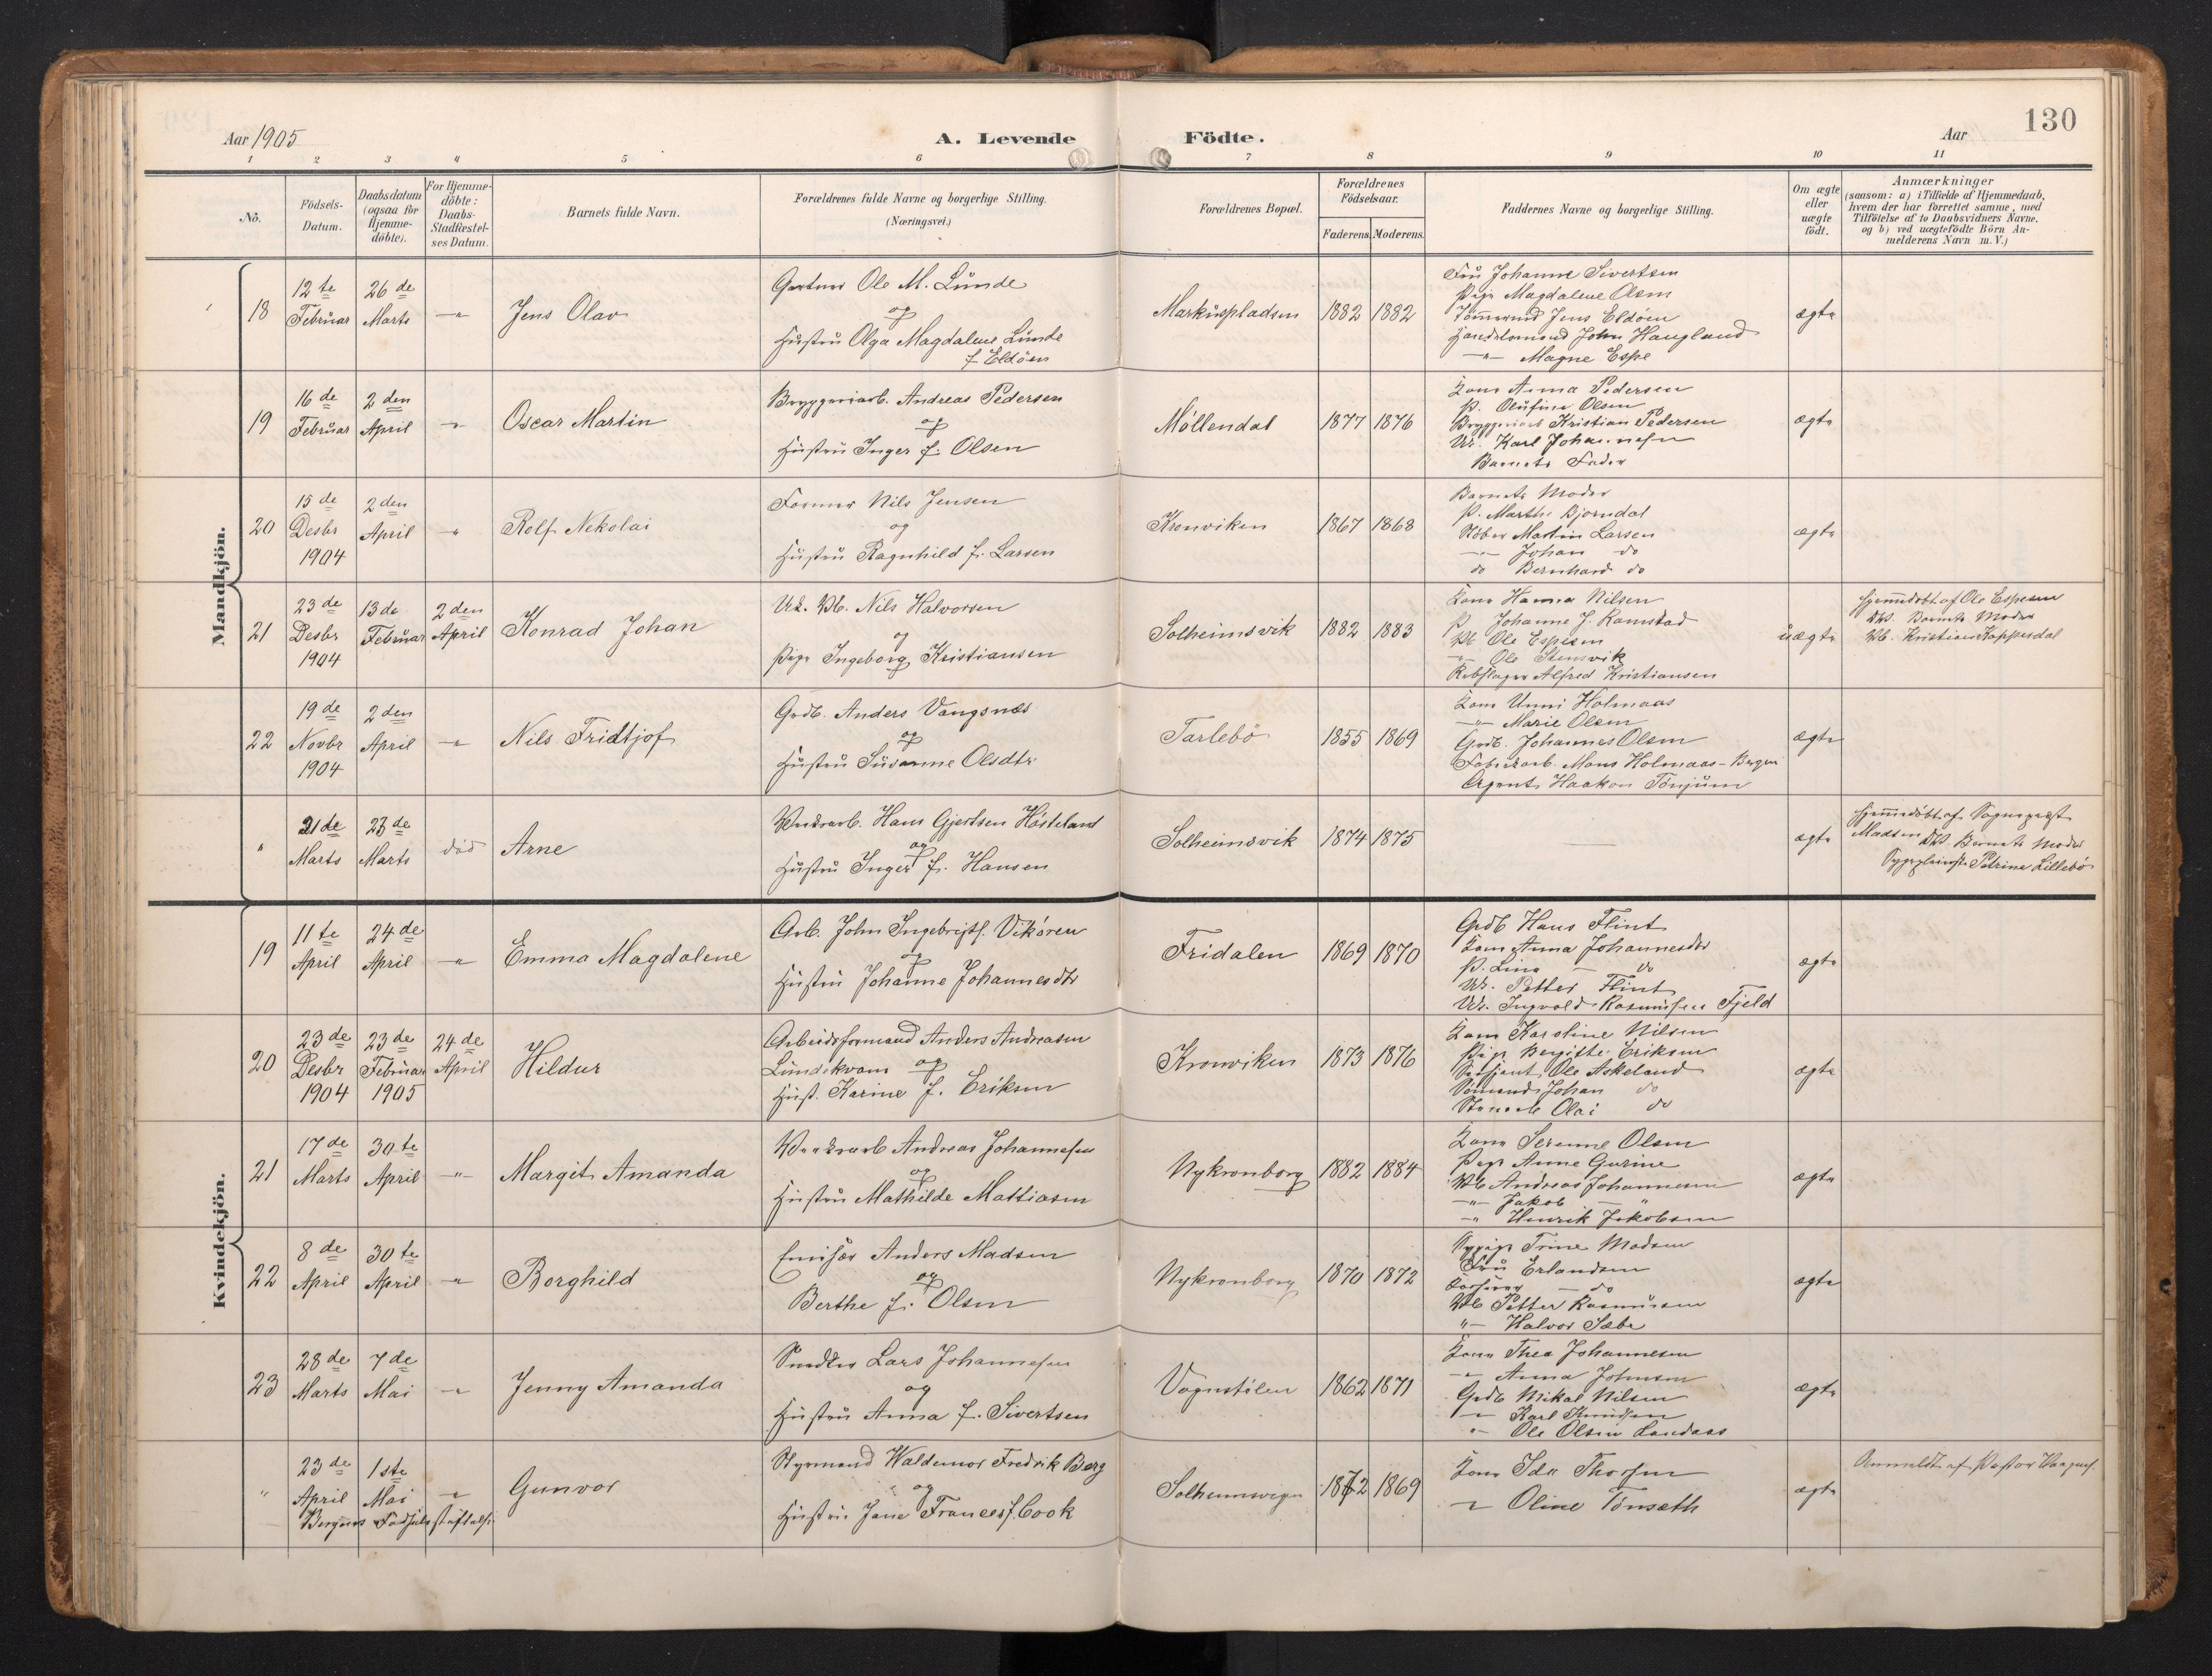 Aar 1905
A. Levende Födte.
Aar
130
1 2 3 4 5 6 7 8 9 10 11
No.
Födsels-
Datum.
Daabsdatum
(ogsaa for
Hjemme-
döbte).
For Hjemme-
döbte:
Daabs-
Stadfæstel-
ses Datum.
Barnets fulde Navn.
Forældrenes fulde Navne og borgerlige Stilling.
(Næringsvei.)
Forældrenes Bopæl.
Forældrenes
Födselsaar.
Faderens. Moderens.
Faddernes Navne og borgerlige Stilling.
Om ægte
eller
uægte
födt.
Anmærkninger
(saasom: a) i Tilfælde af Hjemmedaab,
hvem der har forrettet samme, med
Tilföielse af to Daabsvidners Navne.
og b) ved uægtefödte Börn An-
melderens Navn m. V.)
Mandkjön.
18
12te
Februar
26de
Marts
-"-
Jens Olav
Gartner Ole M. Lunde
og
Hustru Olga Magdalene Lunde
f. Eldöen
Markuspladsen
1882
1882
Fru Johanne Sivertsen
Pige Magdalene Olsen
Tömmermd Jens Eldöen
Handelsmand John Haugland
-"- Magne Espe
ægte
19
16de
Februar
2den
April
-"-
Oscar Martin
Bryggeriarb. Andreas Pedersen
og
Hustru Inger f. Olsen
Möllendal
1877
1876
Kone Anna Pedersen
P. Olufine Olsen
Bryggeriarb Kristian Pedersen
Uk. Karl Johannesen
Barnets Fader
ægte
20
15de
Desbr
1904
2den
April
-"-
Rolf Nekolai
Former Nils Jensen
og
Hustru Ragnhild f. Larsen
Kronviken
1867
1868
Barnets Moder
P. Marthe Bjorndal
Stöber Martin Larsen
-"- Johan do
do Bernhard do
ægte
21
23de
Desbr
1904
13de
Februar
2den
April
Konrad Johan
Uk. Vb. Nils Halvorsen
og
Pige Ingeborg Kristiansen
Solheimsvik
1882
1883
Kone Hanna Nilsen
P. Johanne J. Ramstad
Vb Ole Espesen
-"- Ole Stensvik
Rebslager Alfred Kristiansen
uægte
Hjemmedöbt af Ole Espesen
DV. Barnets Moder
Vb. Kristian Koppesdal
22
19de
Novbr
1904
2den
April
-"-
Nils Fridtjof
Grdb. Anders Vangsnes
og
Hustru Susanne Olsdtr
Tarlebö
1855
1869
Kone Unni Holmaas
-"- Marie Olsen
Grdb. Johannes Olsen
Fabrikarb. Mons Holmaas - Bergen
Agent Haakon Tönjum
ægte
"
21de
Marts
23de
Marts
död
Arne
Verksarb. Hans Gjertsen Hösteland
og
Hustru Inger f. Hansen
Solheimsvik
1874
1875
ægte
Hjemmedöbt af Sognepræst
Madsen DV. Barnets Moder
Sygepleierske Petrine Lillebö
Kvindekjön.
19
11te
April
24de
April
-"-
Emma Magdalene
Arb. John Ingebrigts. Vikören
og
Hustru Johanne Johannesdtr
Fridalen
1869
1870
Grdb Hans Flint
Kone Anna Johannesdtr
P. Lina — do
Uk. Petter Flint
Uk. Ingvald Rasmussen Fjeld
ægte
20
23de
Desbr
1904
23de
Februar
1905
24de
April
Hildur
Arbeidsformand Anders Andreasen
Lundekvam og
Hust. Karine f. Eriksen
Kronviken
1873
1876
Kone Karoline Nilsen
Pige Bergitte Eriksen
Sersjant Ole Askeland
Sömand Johan do
Olai do
ægte
21
17de
Marts
30te
April
-"-
Margit Amanda
Verksarb Andreas Johannesen
og
Hustru Mathilde Mattiasen
Nykronborg
1882
1884
Kone Serenne Olsen
Pige Anne Gurine
Vb Andreas Johannesen
-"- Jakob — "
-"- Henrik Jakobsen
ægte
22
8de
April
30te
April
-"-
Borghild
Emisær Anders Madsen
og
Berthe f. Olsen
Nykronborg
1870
1872
Trine Madsen
Fru Erlandsen
do
Vb Petter Rasmussen
"- Halvor Sæbö
ægte
23
28de
Marts
7de
Mai
-"-
Jenny Amanda
Snedker Lars Johannesen
og
Hustru Anna f. Sivertsen
Vognstölen
1862
1871
Kone Thea Johannesen
-"- Anna Johnsen
Grdb Mikal Nilsen
-"- Karl Knudsen
-"- Ole Olsen Landaas
ægte
"
23de
April
1ste
Mai
-"-
Bergens Födselsstiftelse
Gunvor
Styrmand Waldemar Fredrik Berg
og
Hustru Jane Frances f. Cook
Solheimsvegen
1872
1869
Kone Ida Thorsen
-"- Oline Tönseth
ægte
Anmeldt af Pastor